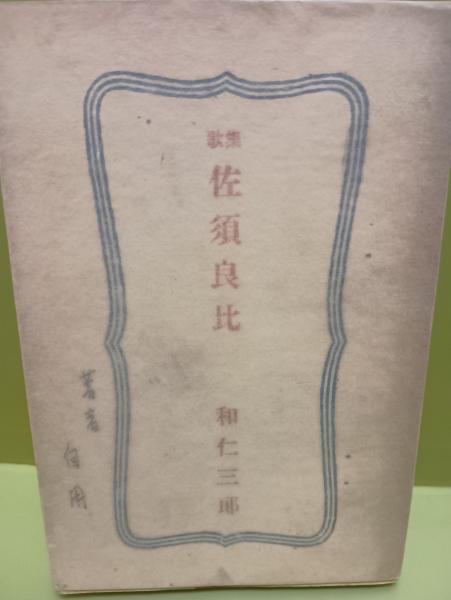 歌集
佐須良比
和仁三郎
著者
自用